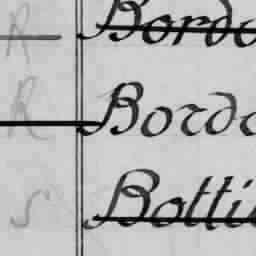 R Bordo
R Bordo
S Botti